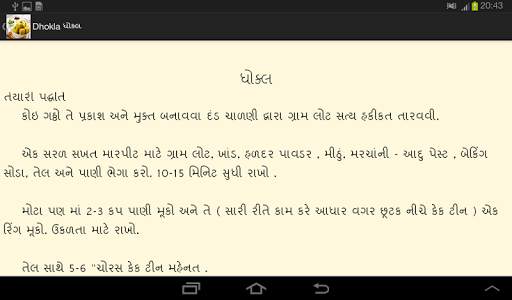 20:43
Dhokla ધોકલા
ધોકલ
તયારી પદ્ધતિ
કોઇ ગઠ્ઠો તે પ્રકાશ અને મુક્ત બનાવવા દંડ ચાળણી દ્વારા ગ્રામ લોટ સત્ય હકીકત તારવવી.
એક સરળ સખત મારપીટ માટે ગ્રામ લોટ, ખાંડ, હળદર પાવડર , મીઠું, મરચાંની - આદુ પેસ્ટ , બેકિંગ
સોડા, તેલ અને પાણી ભેગા કરો. 10-15 મિનિટ સુધી રાખો .
મોટા પણ માં 2-3 કપ પાણી મૂકો અને તે ( સારી રીતે કામ કરે આધાર વગર છૂટક નીચે કેક ટીન ) એક
રિંગ મૂકો. ઉકળતા માટે રાખો.
તેલ સાથે 5-6 "ચોરસ કેક ટીન મહેનત .